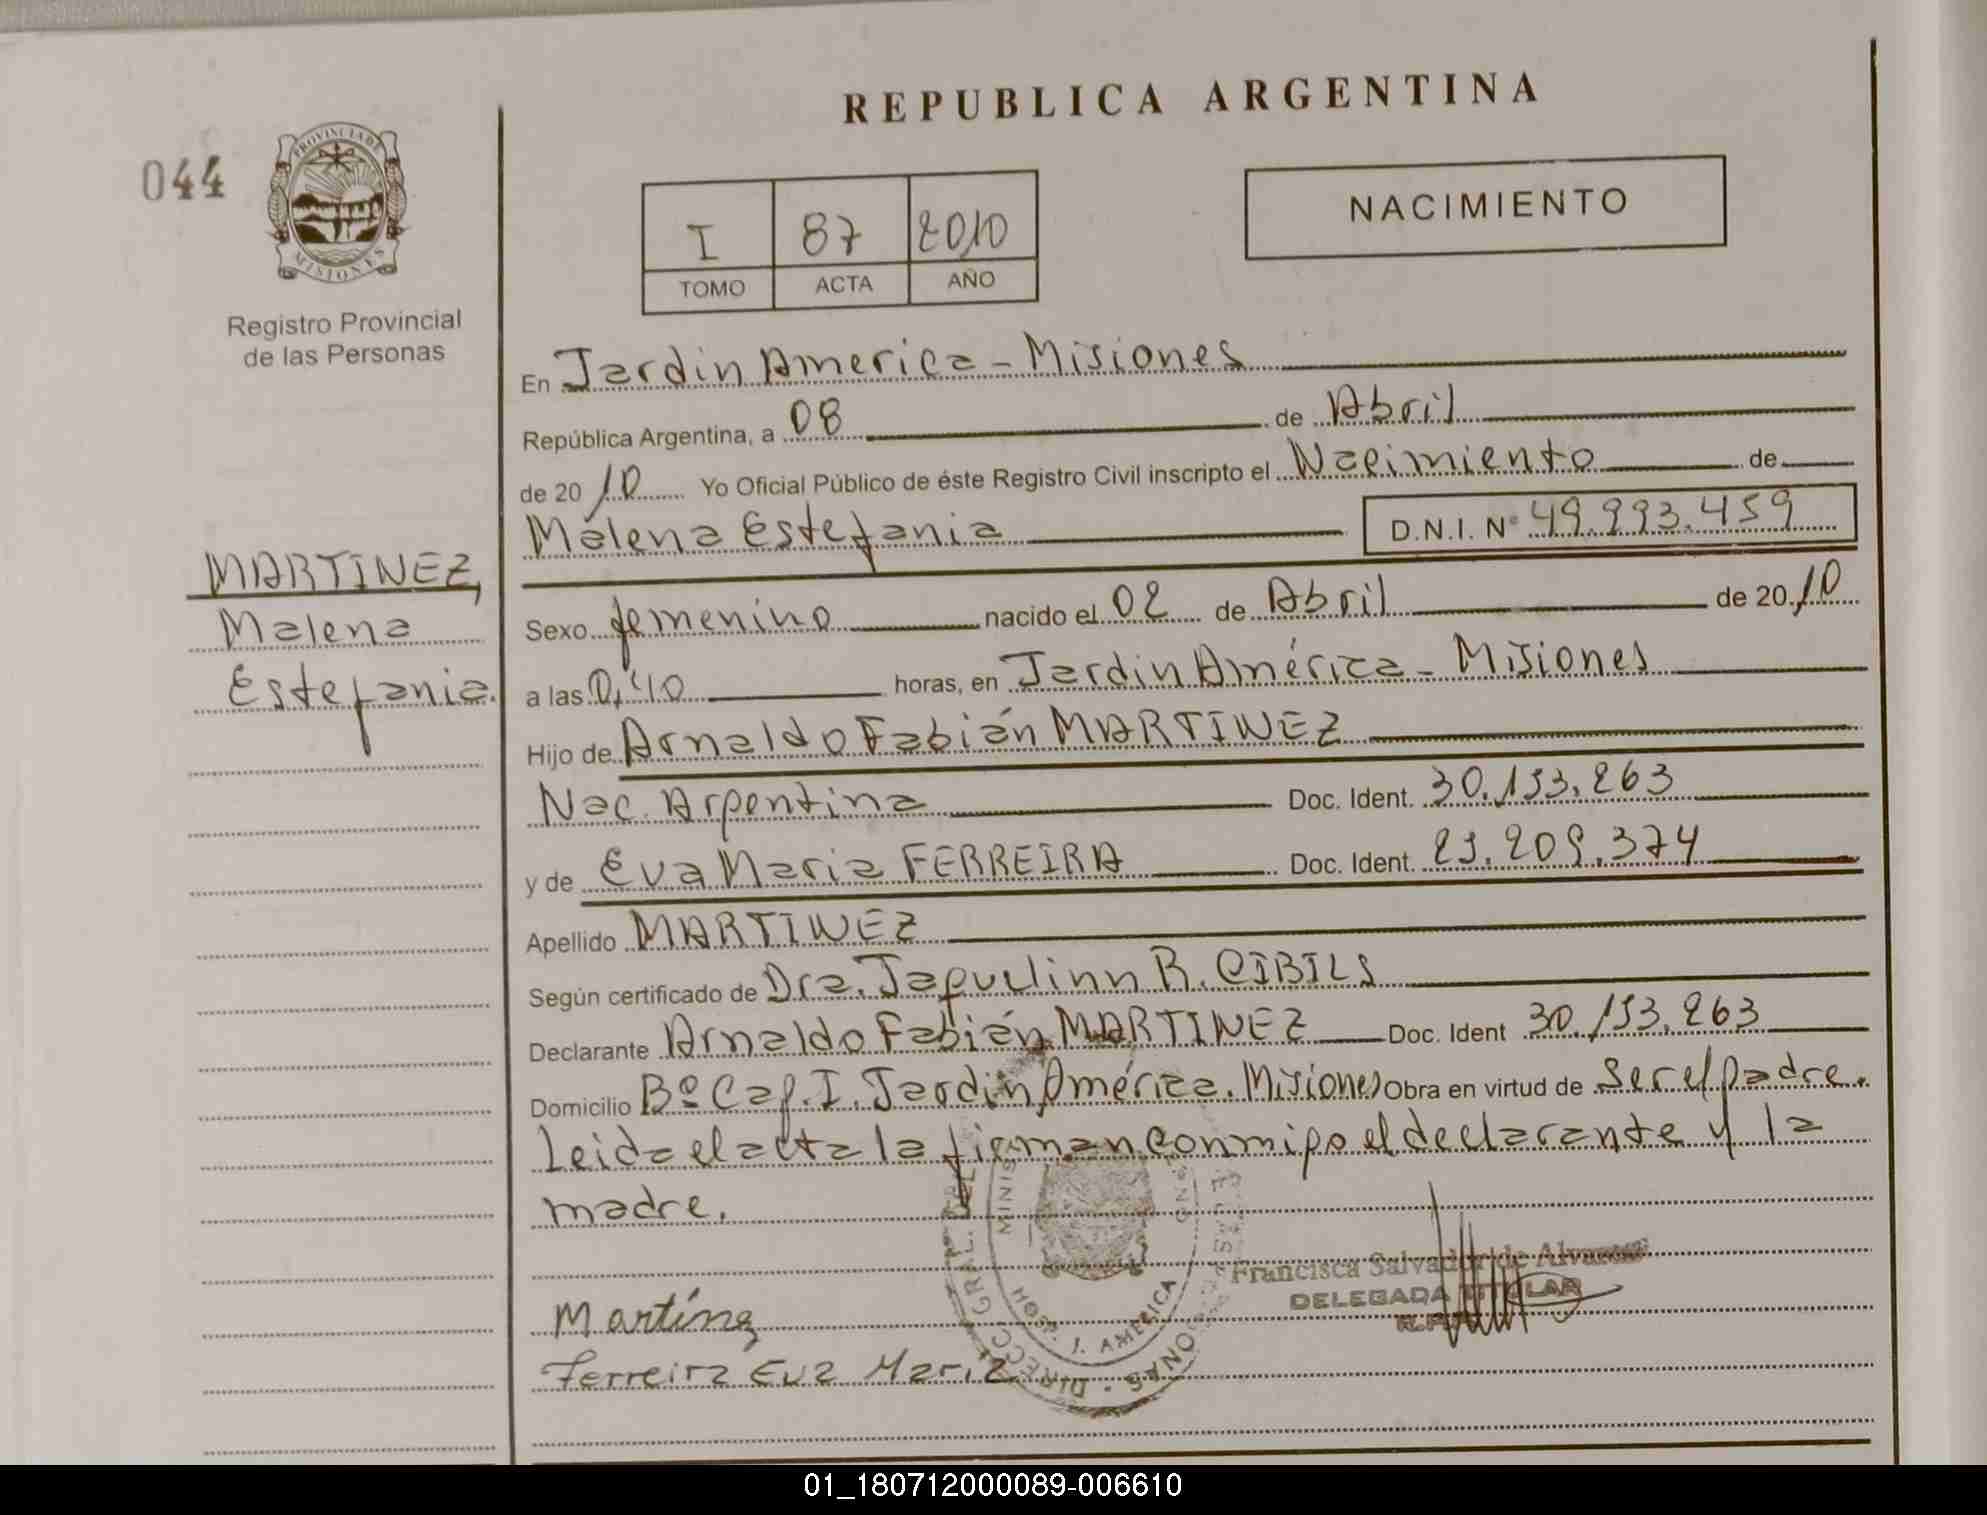 REPUBLICA ARGENTINA
044
PROVINCIA DE
MISIONES
Registro Provincial
de las Personas
I 87 2010
TOMO ACTA AÑO
NACIMIENTO
En Jardin America - Misiones
República Argentina, a 08 de Abril
de 2010 Yo Oficial Público de éste Registro Civil inscripto el Nacimiento de
Malena Estefania D.N.I. N° 49.993.459
MARTINEZ,
Malena
Estefania.
Sexo femenino nacido el 02 de Abril de 2010
a las 0,40 horas, en Jardin América - Misiones
Hijo de Arnaldo Fabián MARTINEZ
Nac. Argentina Doc. Ident. 30.133.263
y de Eva Maria FERREIRA Doc. Ident. 29.209.374
Apellido MARTINEZ
Según certificado de Dra. Jaquelinn R. CIBILS
Declarante Arnaldo Fabián MARTINEZ Doc. Ident 30.133.263
Domicilio Bº Cap. I. Jardin América. Misiones Obra en virtud de ser el padre.
Leida el acta la firman conmigo el declarante y la
madre.
Francisca Salvador de Alvarez
DELEGADA TITULAR
Martínez
Ferreira Eva Maria
HOSP. J. AMERICA
01_180712000089-006610